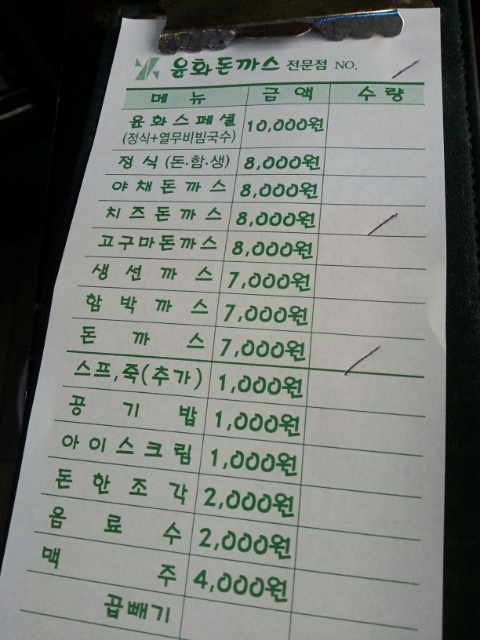 윤화돈까스 전문점 NO.
메뉴 금액 수량
윤화스페셜 10,000원
(정식+열무비빔국수)
정식(돈·함·생) 8,000원
야채돈까스 8,000원
치즈돈까스 8,000원
고구마돈까스 8,000원
생선까스 7,000원
함박까스 7,000원
돈까스 7,000원
스프,죽(추가) 1,000원
공기밥 1,000원
아이스크림 1,000원
돈한조각 2,000원
음료수 2,000원
맥주 4,000원
곱빼기